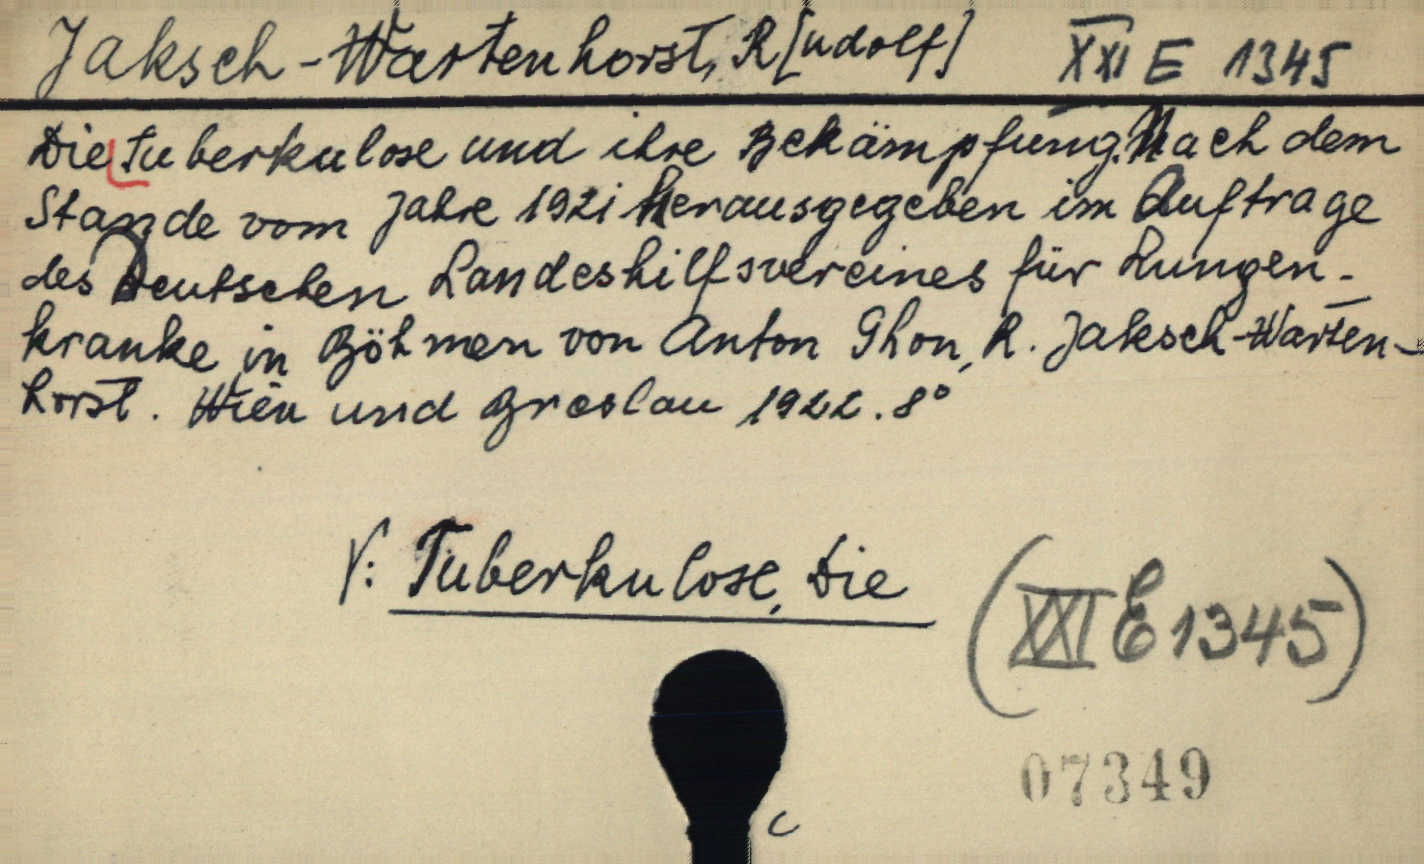 Jaksch-Wartenhorst, R[udolf] XXI E 1345
Die Tuberkulose und ihre Bekämpfung. Nach dem
Stande vom Jahre 1921 herausgegeben im Auftrage
des Deutschen Landeshilfsvereines für Lungen-
kranke in Böhmen von Anton Ghon, R. Jaksch-Warten-
horst. Wien und Breslau 1922. 8°
V: Tuberkulose, Die
(XXI E 1345)
07349
c